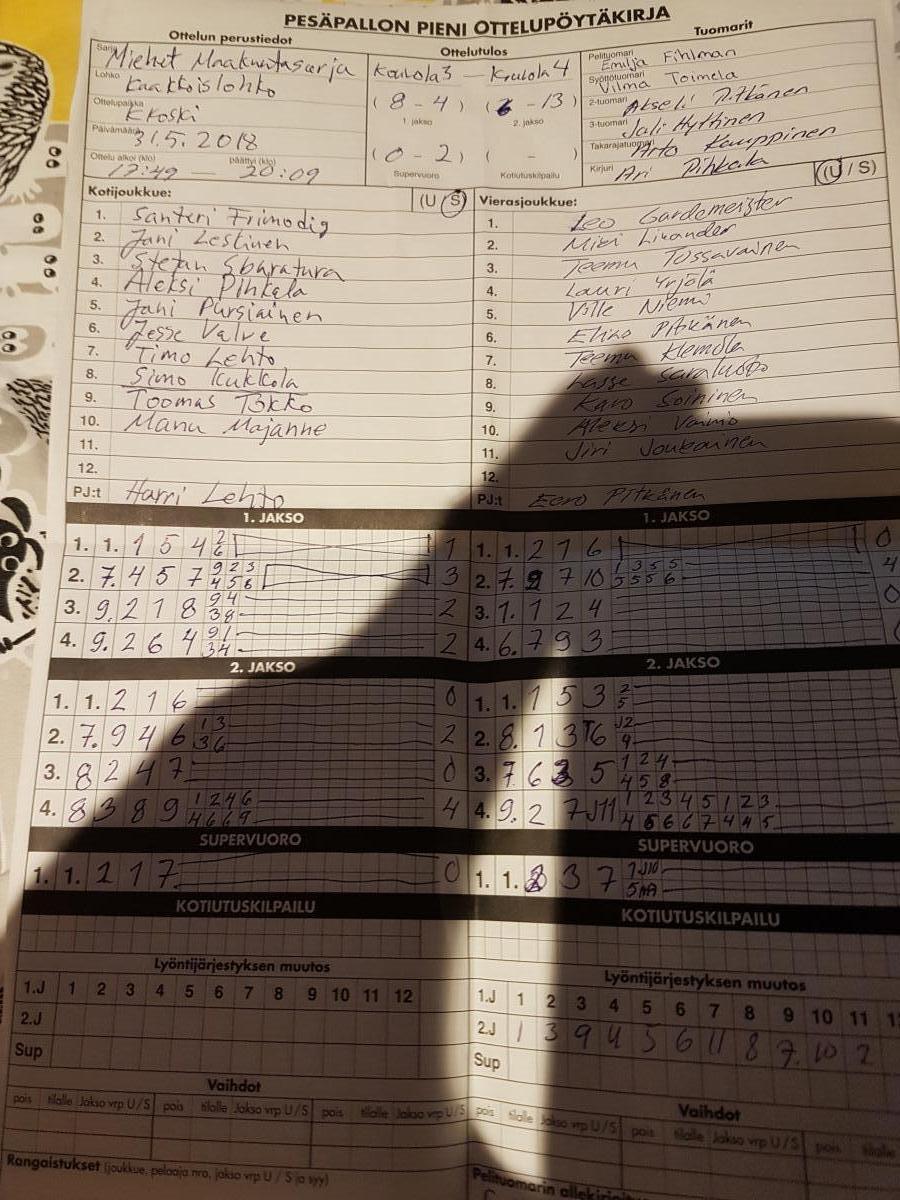 PESÄPALLON PIENI OTTELUPÖYTÄKIRJA
Ottelun perustiedot
Ottelutulos
Tuomarit
Sarja Miehet Maakuntasarja
Lohko Kaakkoislohko
Ottelupaikka
Päivämäärä 31.5.2018
Ottelu alkoi (klo) päättyi (klo)
17:49 — 20:09
Kouvola 3 Kouvola 4
(8 - 4) ( - 13)
1. jakso 2. jakso
(0 - 2) ( - )
Supervuoro Kotiutuskilpailu
Pelituomari Emilja Fihlman
Syöttötuomari Vilma Toimela
2-tuomari Akseli Pitkänen
3-tuomari Jali Hyttinen
Takarajatuomari Arto Kauppinen
Kirjuri Ari Pihkala
Kotijoukkue: (U / S)
1. Santeri Frimodig
2. Jani Leskinen
3. Stefan Sbaratura
4. Aleksi Pihkala
5. Jani Pursiainen
6. Jesse Valve
7. Timo Lehto
8. Simo Kukkola
9. Toomas Tokko
10. Manu Majanne
11.
12.
PJ:t Harri Lehto
Vierasjoukkue: (U / S)
1. Leo Gardemeister
2. Miki
3. Teemu Tossavainen
4. Lauri Yrjölä
5. Ville Niemi
6. Pitkänen
7. Teemu Klemola
8. Lasse
9. Karo Soininen
10. Aleksi Vainio
11. Jiri Joukainen
12.
PJ:t Eero Pitkänen
1. JAKSO
1. 1. 1 5 4 2 6 1
2. 7. 4 5 7 9 2 3 4 5 6 3
3. 9. 2 1 8 9 4 3 8 2
4. 9. 2 6 4 9 1 3 4 2
1. JAKSO
1. 1. 2 1 6 0
2. 7. 9 7 10 1 3 5 5 5 5 5 6 4
3. 1. 1 2 4 0
4. 6. 7 9 3
2. JAKSO
1. 1. 2 1 6 0
2. 7. 9 4 6 1 3 3 6 2
3. 8 2 4 7 0
4. 8 3 8 9 1 2 4 6 4 6 6 9 4
2. JAKSO
1. 1. 1 5 3 2 5
2. 8. 1 3 6 J2 9
3. 7 6 3 5 1 2 4 4 5 8
4. 9. 2 7 J11 1 2 3 4 5 1 2 3 4 6 6 7 4 4 5
SUPERVUORO
1. 1. 2 1 7 0
SUPERVUORO
1. 1. 3 7 1 J10
KOTIUTUSKILPAILU
KOTIUTUSKILPAILU
Lyöntijärjestyksen muutos
1.J 1 2 3 4 5 6 7 8 9 10 11 12
2.J
Sup
Lyöntijärjestyksen muutos
1.J 1 2 3 4 5 6 7 8 9 10 11
2.J 1 3 9 4 5 6 11 8 7 10 2
Sup
Vaihdot
pois tilalle Jakso vrp U / S pois tilalle Jakso vrp U / S pois tilalle Jakso vrp U / S
Vaihdot
pois tilalle Jakso vrp U / S pois tilalle Jakso vrp U / S pois tilalle
Rangaistukset (joukkue, pelaaja nro, jakso vrp U / S ja syy)
Pelituomarin